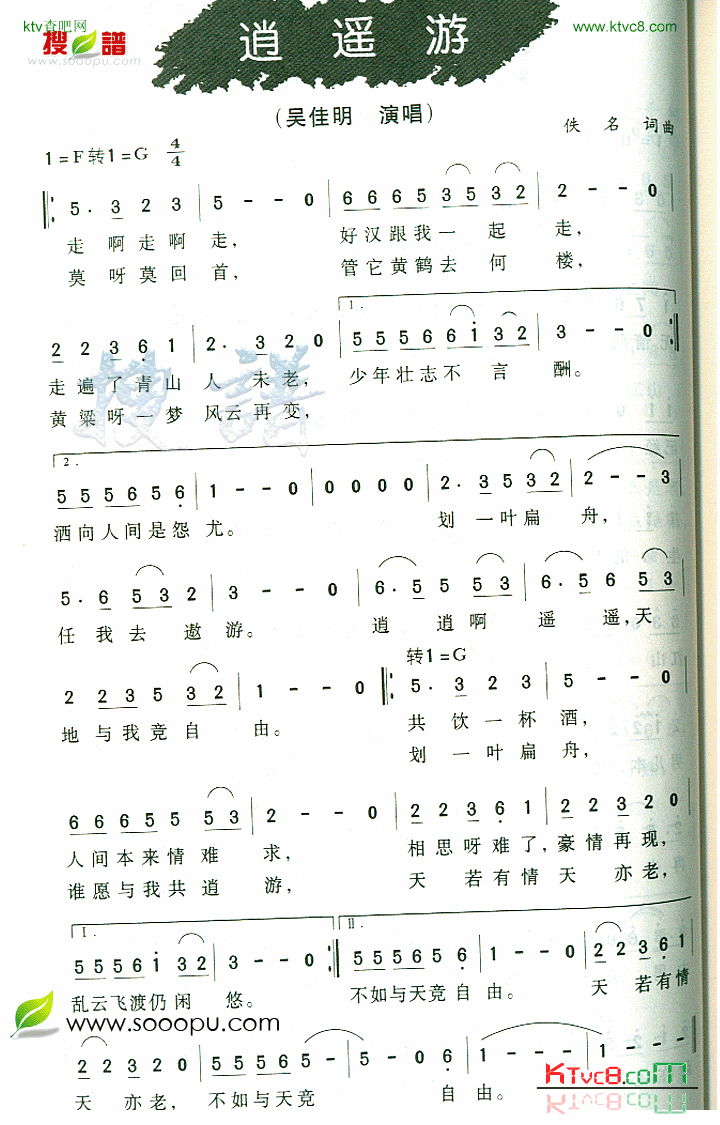 ktv查吧网
搜譜
www.sooopu.com
逍遥游
ktvc8.com
www.ktvc8.com
(吴佳明 演唱)
佚名 词曲
1=F转1=G 4/4
5· 3 2 3 5 - - 0 6 6 6 5 3 5 3 2 2 - - 0
走啊走啊走, 好汉跟我一起走,
莫呀莫回首, 管它黄鹤去何楼,
1.
2 2 3 6 1 2· 3 2 0 5 5 5 6 6 i 3 2 3 - - 0
走遍了青山人未老, 少年壮志不言酬。
黄粱呀一梦风云再变,
2.
5 5 5 6 5 6 1 - - 0 0 0 0 0 2· 3 5 3 2 2 - - 3
洒向人间是怨尤。 划一叶扁舟,
5· 6 5 3 2 3 - - 0 6· 5 5 5 3 6· 5 6 5 3
任我去遨游。 逍逍啊遥遥,天
转1=G
2 2 3 5 3 2 1 - - 0 5· 3 2 3 5 - - 0
地与我竞自由。 共饮一杯酒,
划一叶扁舟,
6 6 6 5 5 5 3 2 - - 0 2 2 3 6 1 2 2 3 2 0
人间本来情难求, 相思呀难了,豪情再现,
谁愿与我共逍游, 天若有情天亦老,
I. II.
5 5 5 6 i 3 2 3 - - 0 5 5 5 6 5 6 1 - - 0 2 2 3 6 1
乱云飞渡仍闲悠。 不如与天竞自由。 天若有情
www.sooopu.com
2 2 3 2 0 5 5 5 6 5 5 - 0 6 1 - - - 1 - -
天亦老, 不如与天竞自由。
KTvc8.com